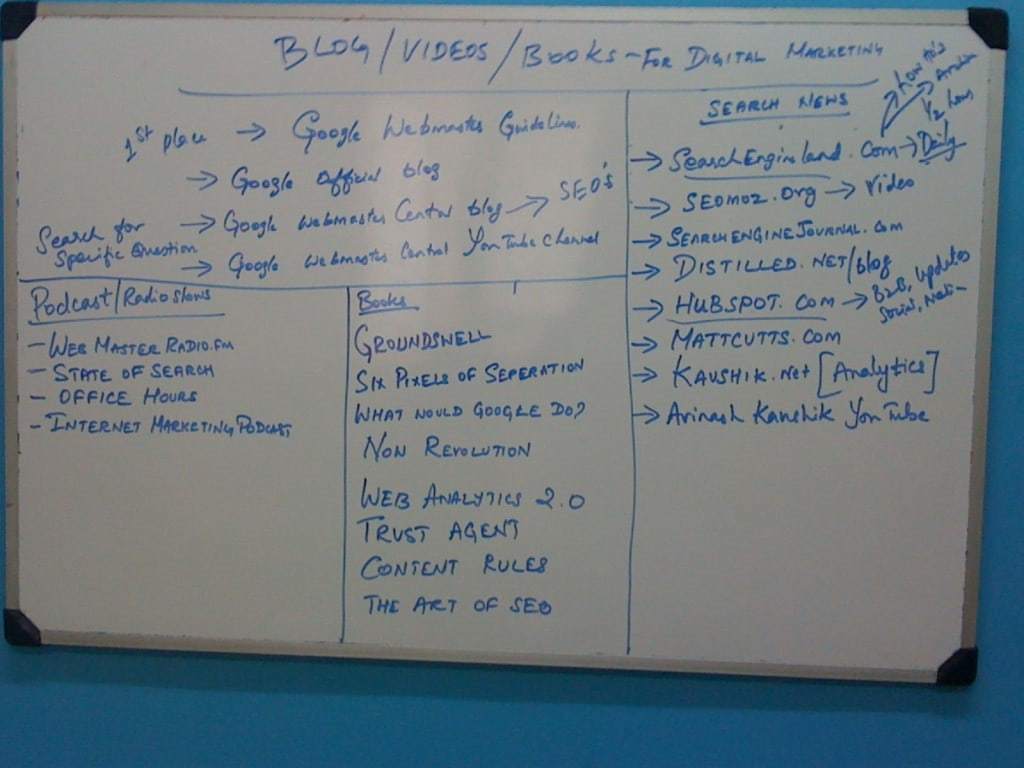 BLOG/VIDEOS/BOOKS - FOR DIGITAL MARKETING
1st place → Google Webmaster Guidelines.
→ Google Official blog
→ Google Webmaster Central blog → SEO's
Search for
Specific Question
→ Google Webmaster Central YouTube Channel
Podcast/Radioshows
- WEB MASTER RADIO.FM
- STATE OF SEARCH
- OFFICE HOURS
- INTERNET MARKETING PODCAST
Books
GROUNDSWELL
SIX PIXELS OF SEPERATION
WHAT WOULD GOOGLE DO?
NON REVOLUTION
WEB ANALYTICS 2.0
TRUST AGENT
CONTENT RULES
THE ART OF SEO
SEARCH NEWS
how to's
1/2 hour
→ SearchEngineland.com → Daily
→ SEOMOZ.org → Video
→ SEARCHENGINEJOURNAL.COM
→ DISTILLED.NET/blog
→ HUBSPOT.COM → B2B, Updates
Social,
→ MATTCUTTS.COM
→ KAUSHIK.NET [Analytics]
→ Avinash Kaushik YouTube